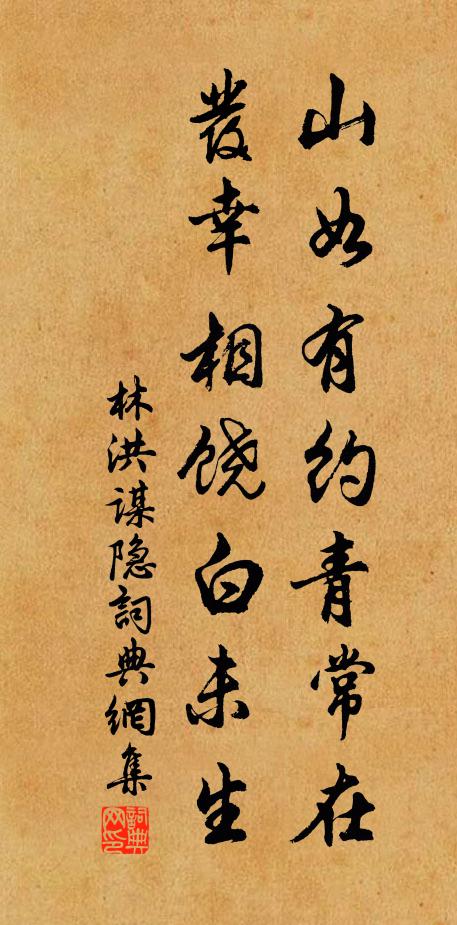 山如有约青常在
發幸相饶白未生
林洪谋隐詞典網集
詞典网印